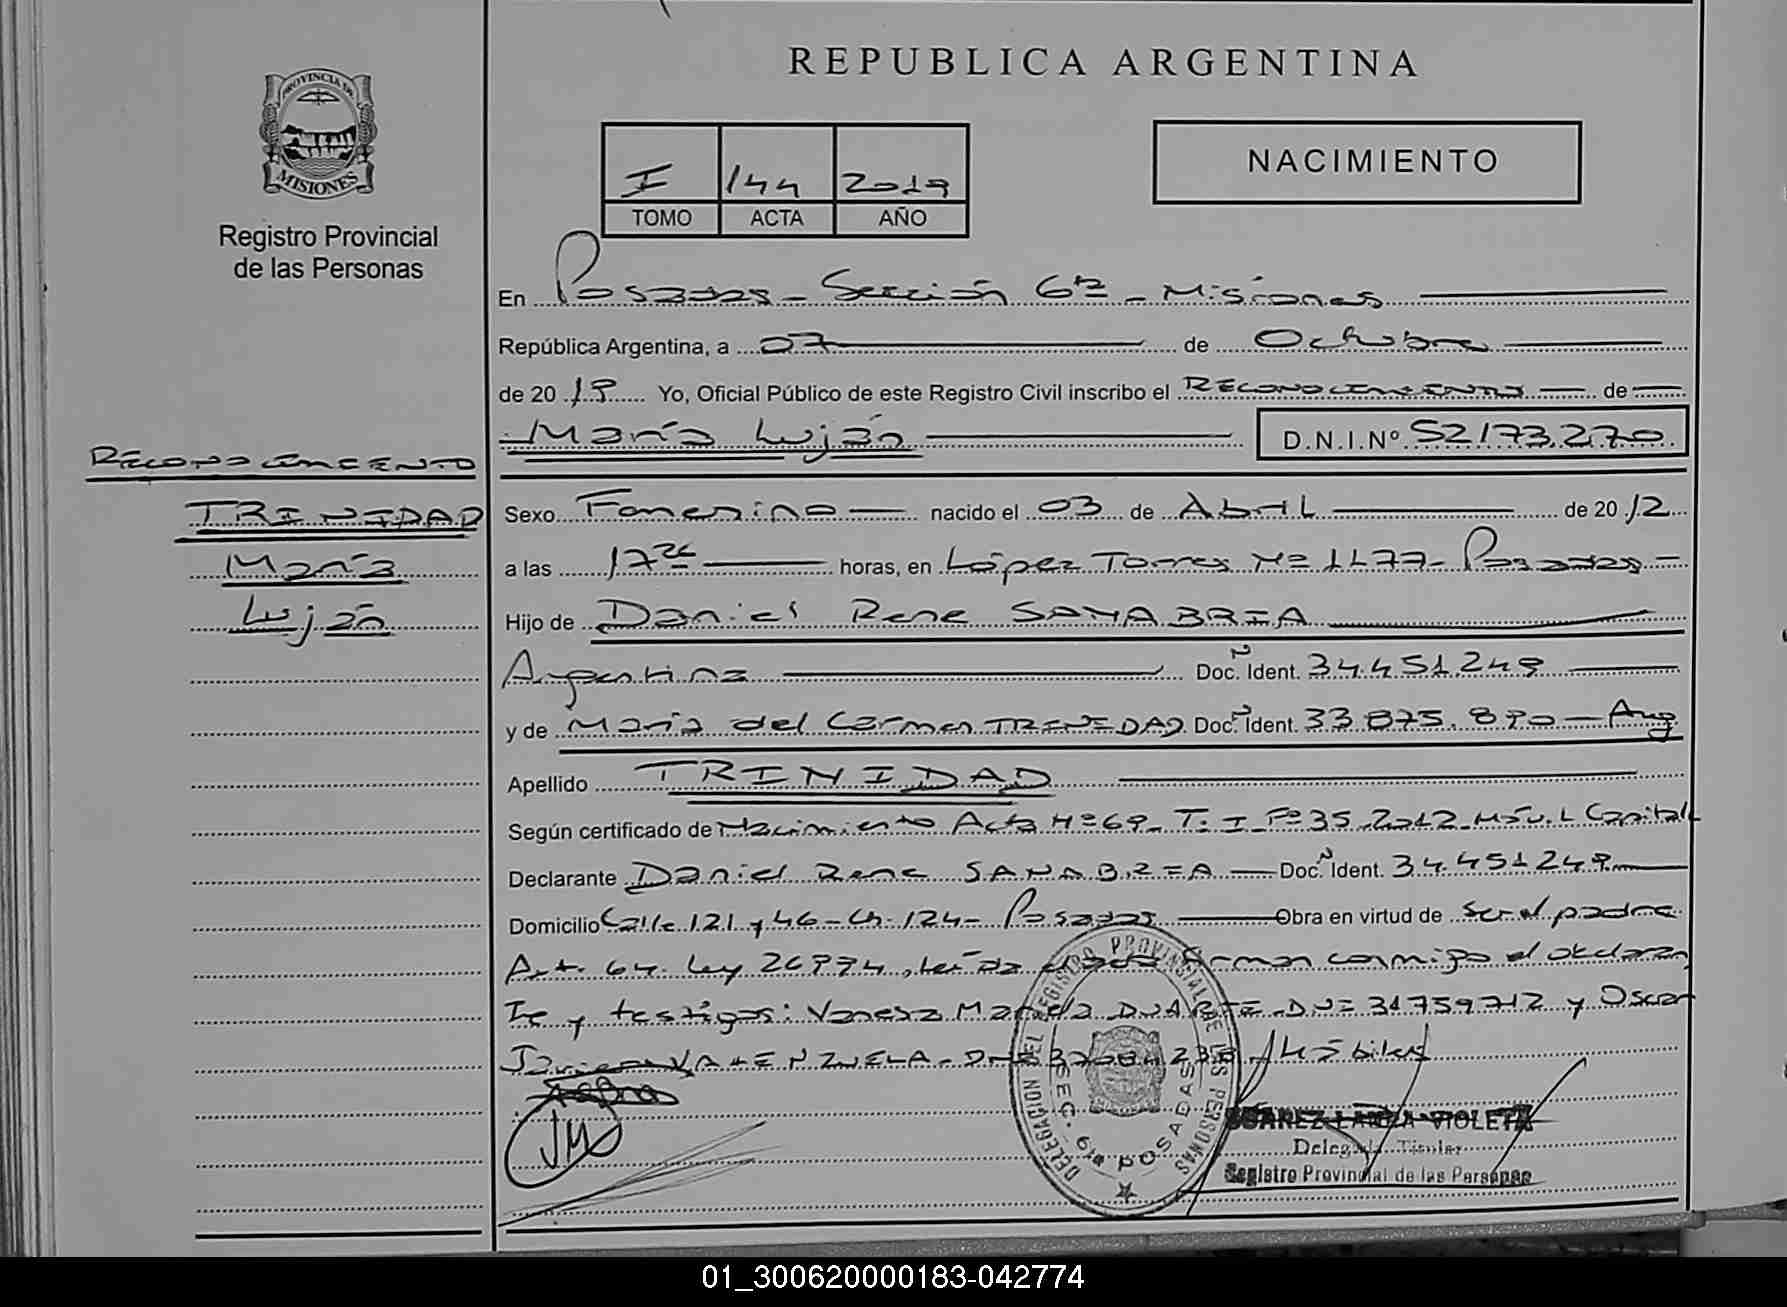 REPUBLICA ARGENTINA
PROVINCIA DE
MISIONES
Registro Provincial
de las Personas
I 144 2019
TOMO ACTA AÑO
NACIMIENTO
En Posadas - Sección 6ta - Misiones
República Argentina, a 07 de Octubre
de 2019 Yo, Oficial Público de este Registro Civil inscribo el RECONOCIMIENTO de
María Luján D.N.I.Nº 52173.270
RECONOCIMIENTO
TRINIDAD
María
Luján
Sexo Femenino nacido el 03 de Abril de 2012
a las 17 horas, en López Torres Nº 1177 - Posadas
Hijo de Daniel Rene SANABRIA
Argentina Doc. N Ident. 34.451.249
y de María del Carmen TRINIDAD Doc. N Ident. 33.875.890 - Arg
Apellido TRINIDAD
Según certificado de Nacimiento Acta Nº 69 - T. I Fº 35 2012 Móv. L Capital
Declarante Daniel Rene SANABRIA Doc. N Ident. 34.451.249
Domicilio Calle 121 y 46 - Ch. 124 - Posadas Obra en virtud de ser el padre
Art. 64. Ley 26994, leída el acta firman conmigo el declaran
te y testigos: Vanesa Mariela DUARTE - DNI 31759712 y Oscar
Javier VALENZUELA - DNI
DELEGACION DEL REGISTRO PROVINCIAL DE LAS PERSONAS
SEC. 6ta POSADAS
VIOLETA
Delegada Titular
Registro Provincial de las Personas
01_300620000183-042774